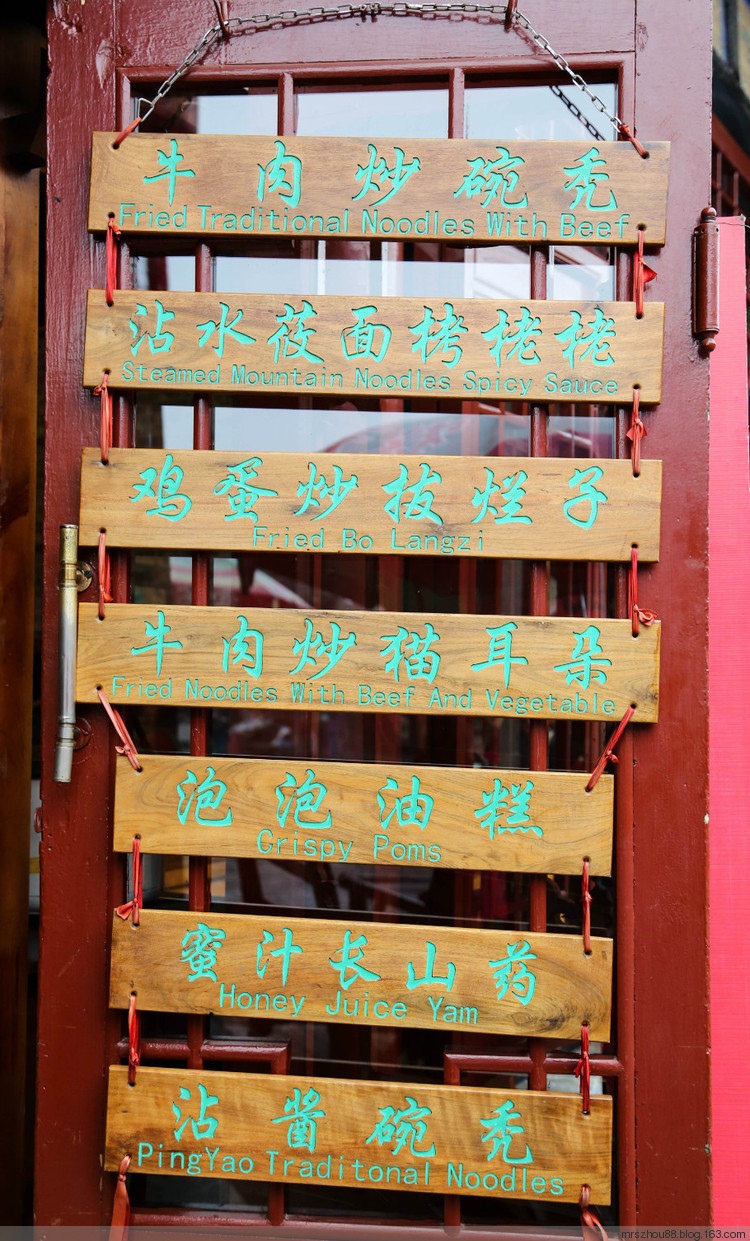 牛肉炒碗秃
Fried Traditional Noodles With Beef
沾水莜面栲栳栳
Steamed Mountain Noodles Spicy Sauce
鸡蛋炒拔烂子
Fried Bo Langzi
牛肉炒猫耳朵
Fried Noodles With Beef And Vegetable
泡泡油糕
Crispy Poms
蜜汁长山药
Honey Juice Yam
沾酱碗秃
PingYao Traditonal Noodles
mrszhou88.blog.163.com